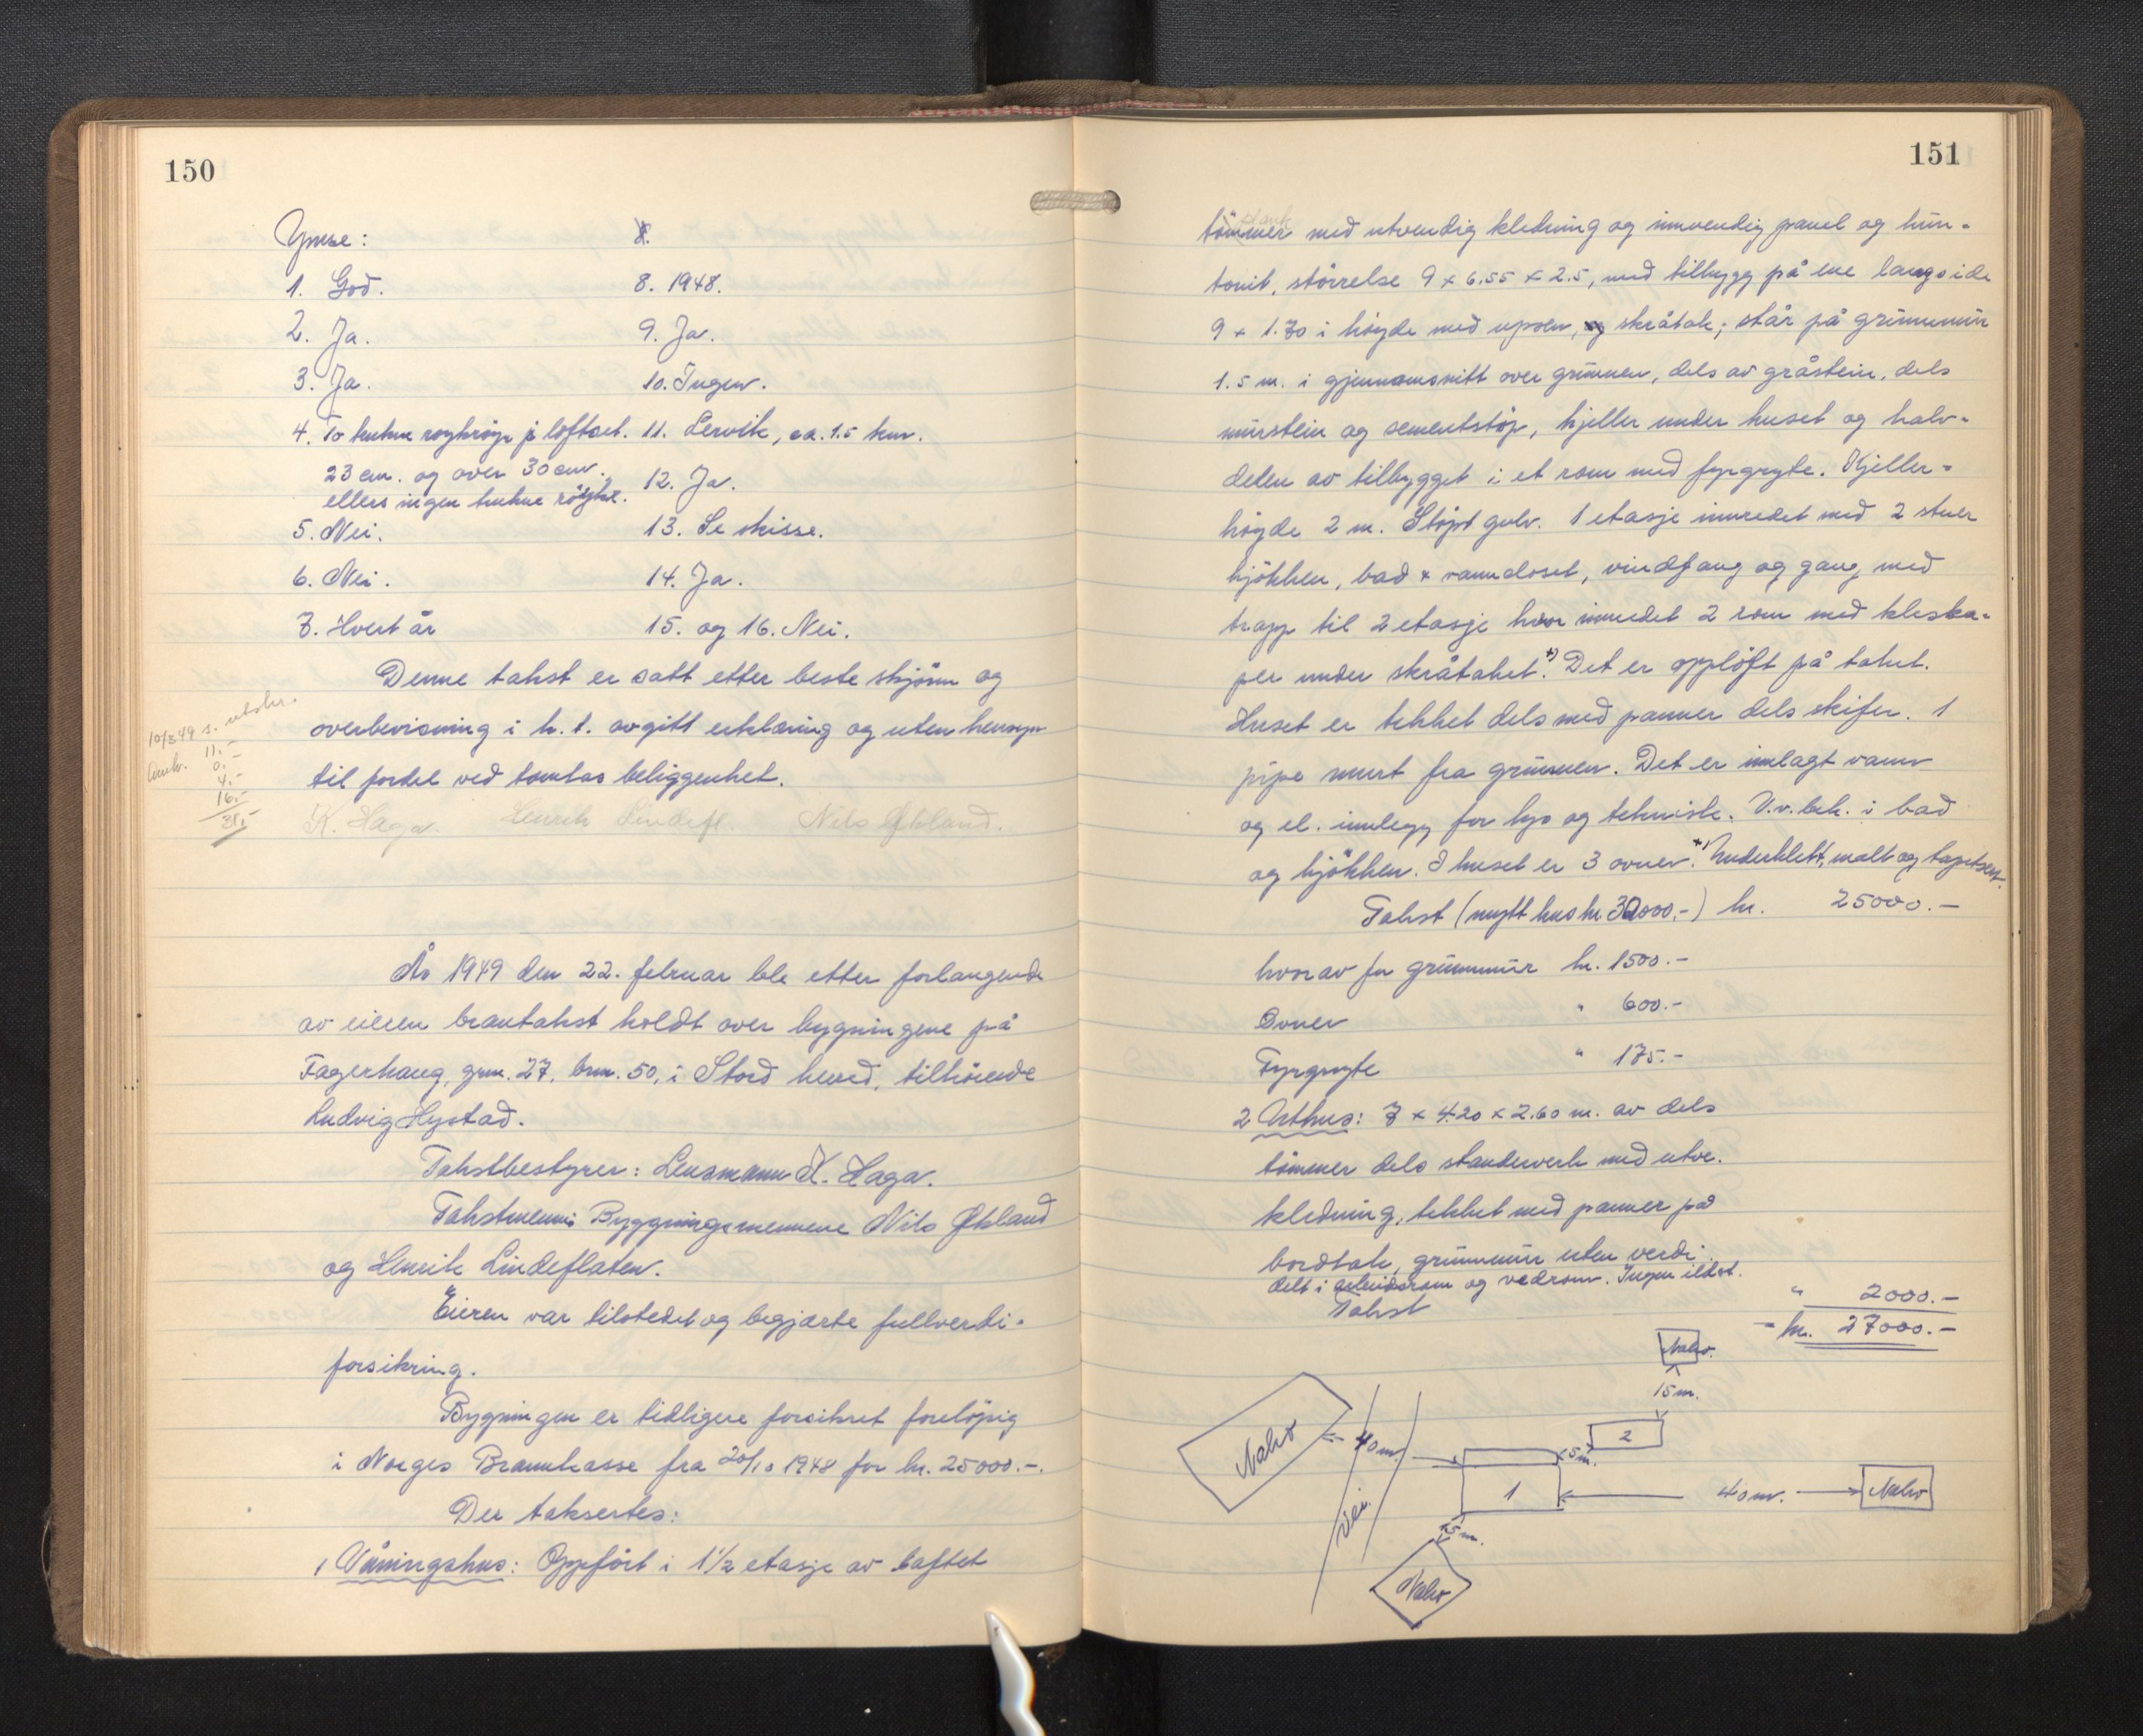 150
Ymse:
1. God.
2. Ja.
3. Ja.
4. To trekne røykrøyr på loftet.
23 cm. og over 30 cm.
ellers ingen trekne röykr.
5. Nei.
6. Nei.
7. Hvert år
8. 1948.
9. Ja.
10. Ingen.
11. Lervik, ca. 1.5 km.
12. Ja.
13. Se skisse.
14. Ja.
15. og 16. Nei.
Denne takst er satt etter beste skjönn og
overbevisning i h.t. avgitt erklæring og uten hensyn
til fordel ved tomtas beliggenhet.
10/3 49 s. utskr.
11.-
0.-
4.-
16.-
31.-
K. Haga. Henrik Lindefl. Nils Økland.
År 1949 den 22. februar ble etter forlangende
av eieren branntakst holdt over bygningene på
Fagerhaug, gnr. 27, bnr. 50, i Stord herred, tilhörende
Ludvig Hystad.
Takstbestyrer: Lensmann K. Haga.
Takstmenn: Byggningsmennene Nils Økland
og Henrik Lindeflaten.
Eieren var tilstedet og begjærte fullverdi-
forsikring.
Bygningen er tidligere forsikret forelöpig
i Norges Brannkasse fra 20/10 1948 for kr. 25000.-.
Der taksertes:
1 Våningshus: Oppfört i 1½ etasje av laftet
151
plank
tömmer med utvendig kledning og innvendig panel og hun-
tonit, störrelse 9 x 6.55 x 2.5, med tilbygg på ene langside
9 x 1.70 i höyde med upsen, og skråtak; står på grunnmur
1.5 m. i gjennomsnitt over grunnen, dels av gråstein, dels
murstein og sementstöp, kjeller under huset og halv-
delen av tilbygget i et rom med fyrgryte. Kjeller-
höyde 2 m. Stöpt gulv. 1 etasje innredet med 2 stuer
kjökken, bad & vannkloset, vindfang og gang med
trapp til 2 etasje hvor innredet 2 rom med kleska-
per under skråtaket. +) Det er opplöft på taket.
Huset er tekket dels med panner dels skifer. 1
pipe murt fra grunnen. Det er innlagt vann
og el. innlegg for lys og teknisk. V.v.bek. i bad
og kjökken. I huset er 3 ovner. +) Underklett, malt og tapetsert.
Takst (nytt hus kr 30000.-) kr. 25000.-
hvorav for grunnmur kr. 1500.-
Ovner " 600.-
Fyrgryte " 175.-
2 Uthus: 7 x 4.20 x 2.60 m. av dels
tömmer dels standerverk med utv.
kledning, tekket med panner på
bordtak, grunnmur uten verdi.
delt i arbeidsrom og vedrom. Ingen ildst.
Takst " 2000.-
kr. 27000.-
Nabo.
15 m.
Nabo
40 m.
2
5 m.
1
40 m.
Nabo
Vei.
15 m.
Nabo